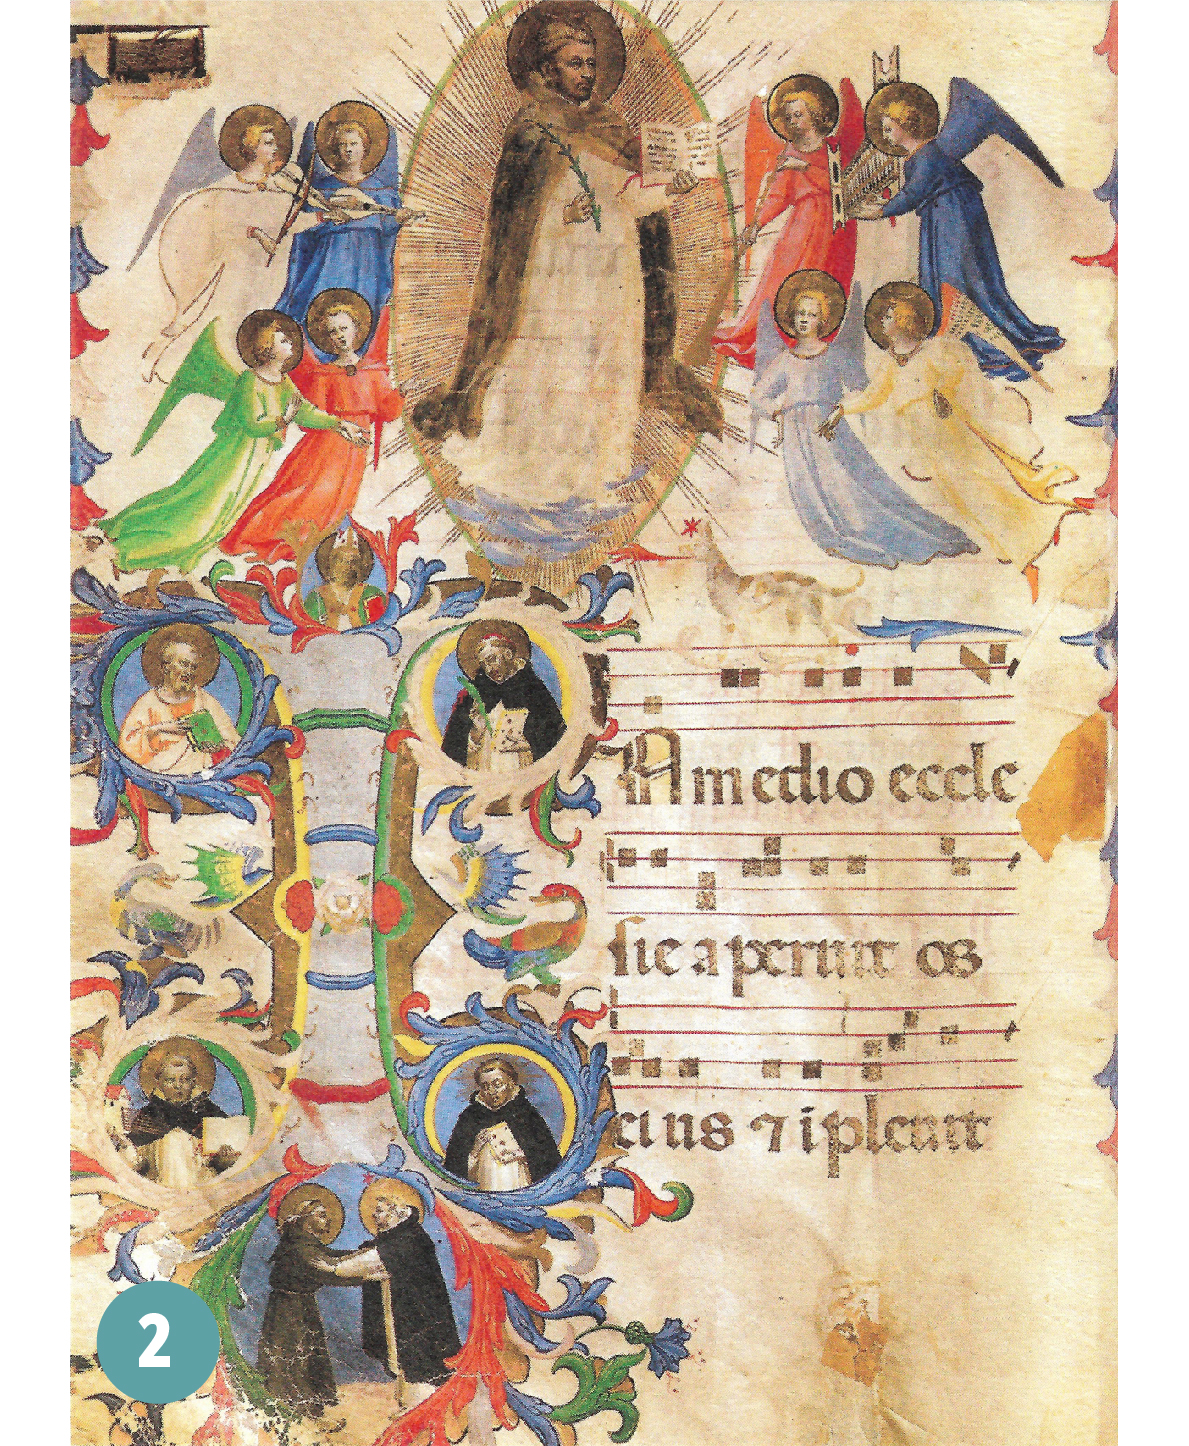 In medio eccle
sie aperuit os
eius ⁊ ipleuit
2